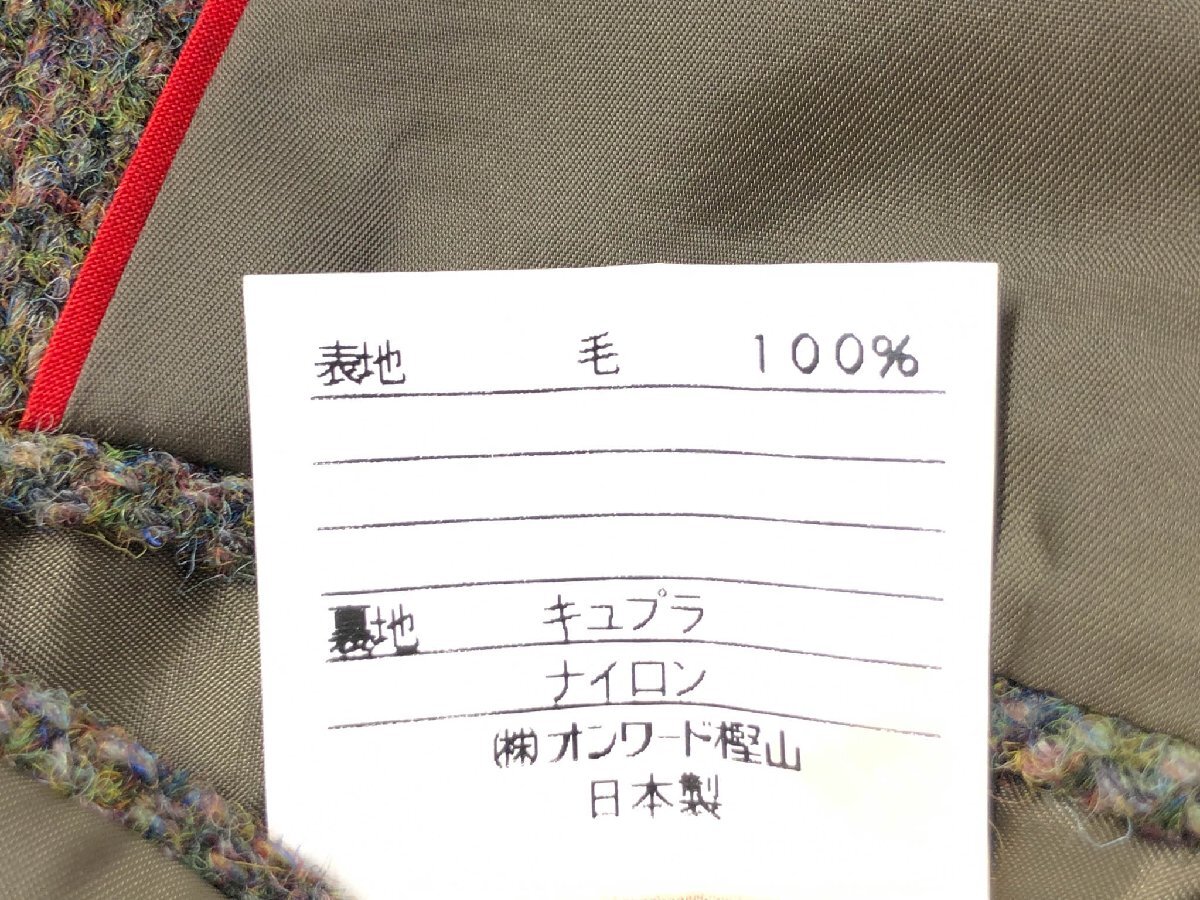 表地 毛 100%
裏地 キュプラ
ナイロン
(株)オンワード樫山
日本製